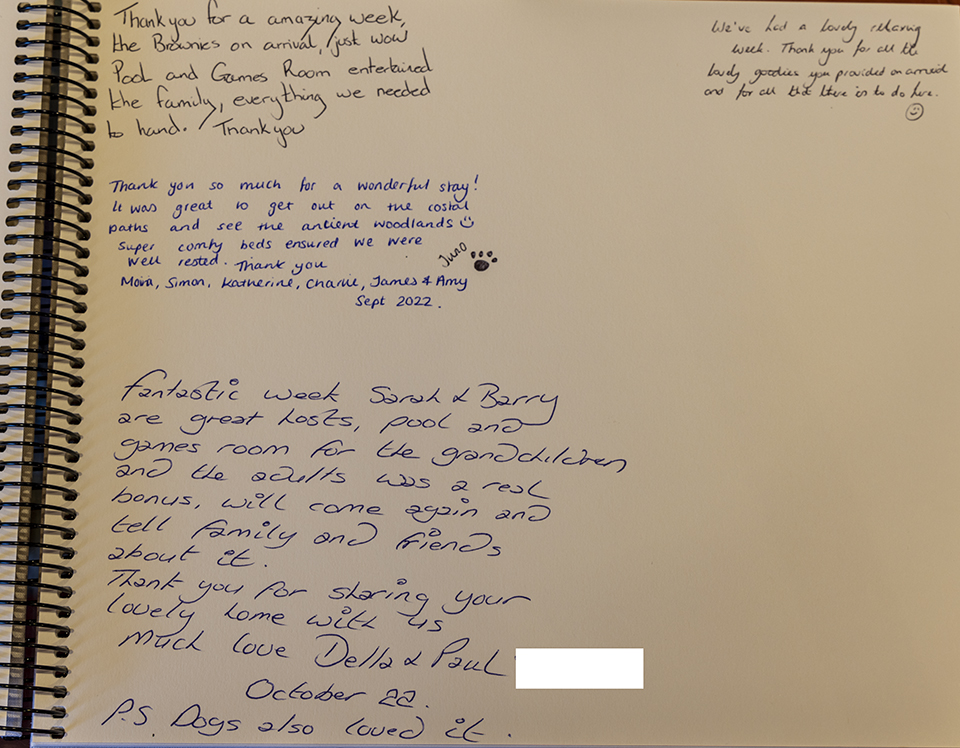 Thank you for a amazing week,
the Brownies on arrival, just wow
Pool and Games Room entertained
the family, everything we needed
to hand. Thank you
We've had a lovely relaxing
week. Thank you for all the
lovely goodies you provided on arrival
and for all that there is to do here.
Thank you so much for a wonderful stay!
It was great to get out on the costal
paths and see the antient woodlands
super comfy beds ensured we were
well rested. Thank you
Juno
Moira, Simon, Katherine, Charlie, James & Amy
Sept 2022.
Fantastic week Sarah & Barry
are great hosts, pool and
games room for the grandchildren
and the adults was a real
bonus, will come again and
tell family and friends
about it.
Thank you for sharing your
lovely home with us
Much love Della & Paul
October 22.
P.S. Dogs also loved it.